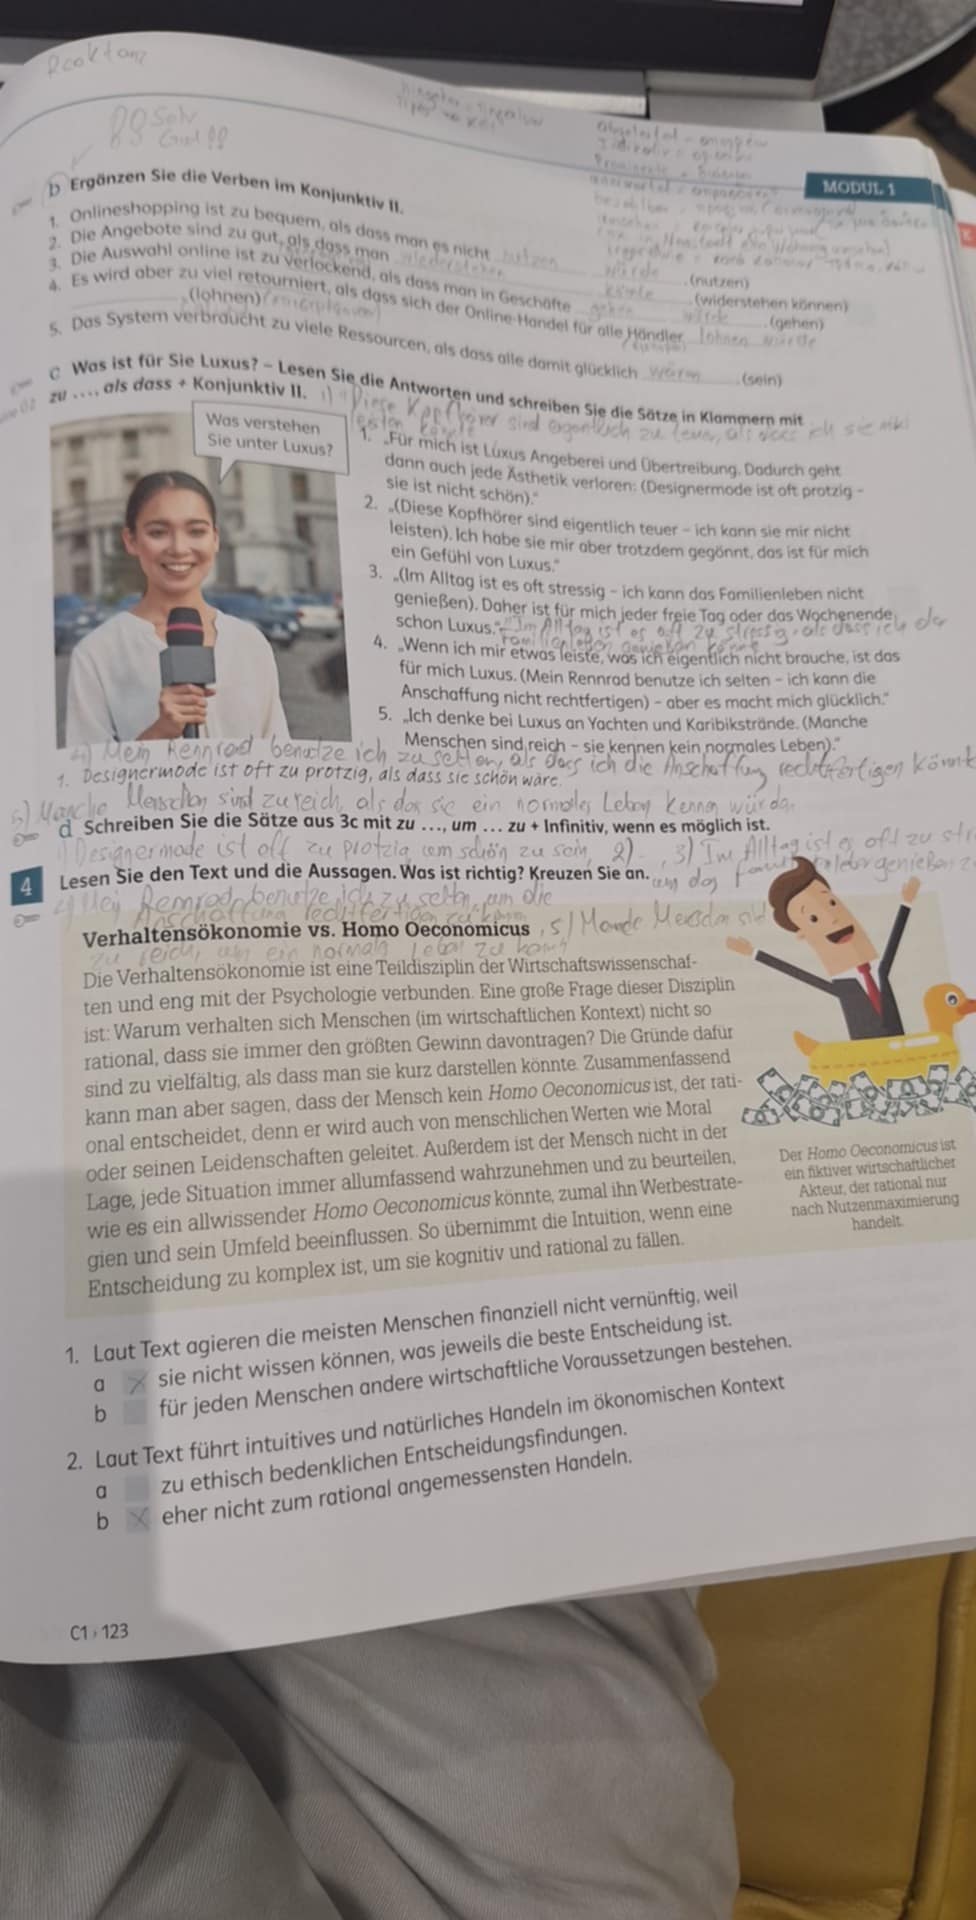 Reaktanz
Sehr
Gut !!
MODUL 1
b Ergänzen Sie die Verben im Konjunktiv II.
1. Onlineshopping ist zu bequem, als dass man es nicht nutzen würde. (nutzen)
2. Die Angebote sind zu gut, als dass man widerstehen könnte. (widerstehen können)
3. Die Auswahl online ist zu verlockend, als dass man in Geschäfte gehen würde. (gehen)
4. Es wird aber zu viel retourniert, als dass sich der Online-Handel für alle Händler lohnen würde
. (lohnen)
5. Das System verbraucht zu viele Ressourcen, als dass alle damit glücklich wären. (sein)
c Was ist für Sie Luxus? – Lesen Sie die Antworten und schreiben Sie die Sätze in Klammern mit
zu …, als dass + Konjunktiv II.
1) "Diese Kopfhörer sind eigentlich zu teuer, als dass ich sie mir
leisten könnte
Was verstehen
Sie unter Luxus?
1. „Für mich ist Luxus Angeberei und Übertreibung. Dadurch geht
dann auch jede Ästhetik verloren: (Designermode ist oft protzig –
sie ist nicht schön).“
2. „(Diese Kopfhörer sind eigentlich teuer – ich kann sie mir nicht
leisten). Ich habe sie mir aber trotzdem gegönnt, das ist für mich
ein Gefühl von Luxus.“
3. „(Im Alltag ist es oft stressig – ich kann das Familienleben nicht
genießen). Daher ist für mich jeder freie Tag oder das Wochenende
schon Luxus.“
Im Alltag ist es oft zu stressig, als dass ich der
Familienleben genießen könnte
4. „Wenn ich mir etwas leiste, was ich eigentlich nicht brauche, ist das
für mich Luxus. (Mein Rennrad benutze ich selten – ich kann die
Anschaffung nicht rechtfertigen) – aber es macht mich glücklich.“
5. „Ich denke bei Luxus an Yachten und Karibikstrände. (Manche
Menschen sind reich – sie kennen kein normales Leben).“
4) Mein Rennrad benutze ich zu selten, als dass ich die Anschaffung rechtfertigen könnt
1. Designermode ist oft zu protzig, als dass sie schön wäre.
5) Manche Menschen sind zu reich, als das sie ein normales Leben kennen würden
d Schreiben Sie die Sätze aus 3c mit zu …, um … zu + Infinitiv, wenn es möglich ist.
1) Designermode ist oft zu protzig, um schön zu sein, 2) - , 3) Im Alltag ist es oft zu str
4 Lesen Sie den Text und die Aussagen. Was ist richtig? Kreuzen Sie an.
um das
4) Mein Rennrad benutze ich zu selten, um die
Anschaffung rechtfertigen zu können
, 5) Manche Menschen sind
zu reich, um ein normales Leben zu
Verhaltensökonomie vs. Homo Oeconomicus
Die Verhaltensökonomie ist eine Teildisziplin der Wirtschaftswissenschaf-
ten und eng mit der Psychologie verbunden. Eine große Frage dieser Disziplin
ist: Warum verhalten sich Menschen (im wirtschaftlichen Kontext) nicht so
rational, dass sie immer den größten Gewinn davontragen? Die Gründe dafür
sind zu vielfältig, als dass man sie kurz darstellen könnte. Zusammenfassend
kann man aber sagen, dass der Mensch kein Homo Oeconomicus ist, der rati-
onal entscheidet, denn er wird auch von menschlichen Werten wie Moral
oder seinen Leidenschaften geleitet. Außerdem ist der Mensch nicht in der
Lage, jede Situation immer allumfassend wahrzunehmen und zu beurteilen,
wie es ein allwissender Homo Oeconomicus könnte, zumal ihn Werbestrate-
gien und sein Umfeld beeinflussen. So übernimmt die Intuition, wenn eine
Entscheidung zu komplex ist, um sie kognitiv und rational zu fällen.
Der Homo Oeconomicus ist
ein fiktiver wirtschaftlicher
Akteur, der rational nur
nach Nutzenmaximierung
handelt.
1. Laut Text agieren die meisten Menschen finanziell nicht vernünftig, weil
a X sie nicht wissen können, was jeweils die beste Entscheidung ist.
b für jeden Menschen andere wirtschaftliche Voraussetzungen bestehen.
2. Laut Text führt intuitives und natürliches Handeln im ökonomischen Kontext
a zu ethisch bedenklichen Entscheidungsfindungen.
b X eher nicht zum rational angemessensten Handeln.
C1 › 123